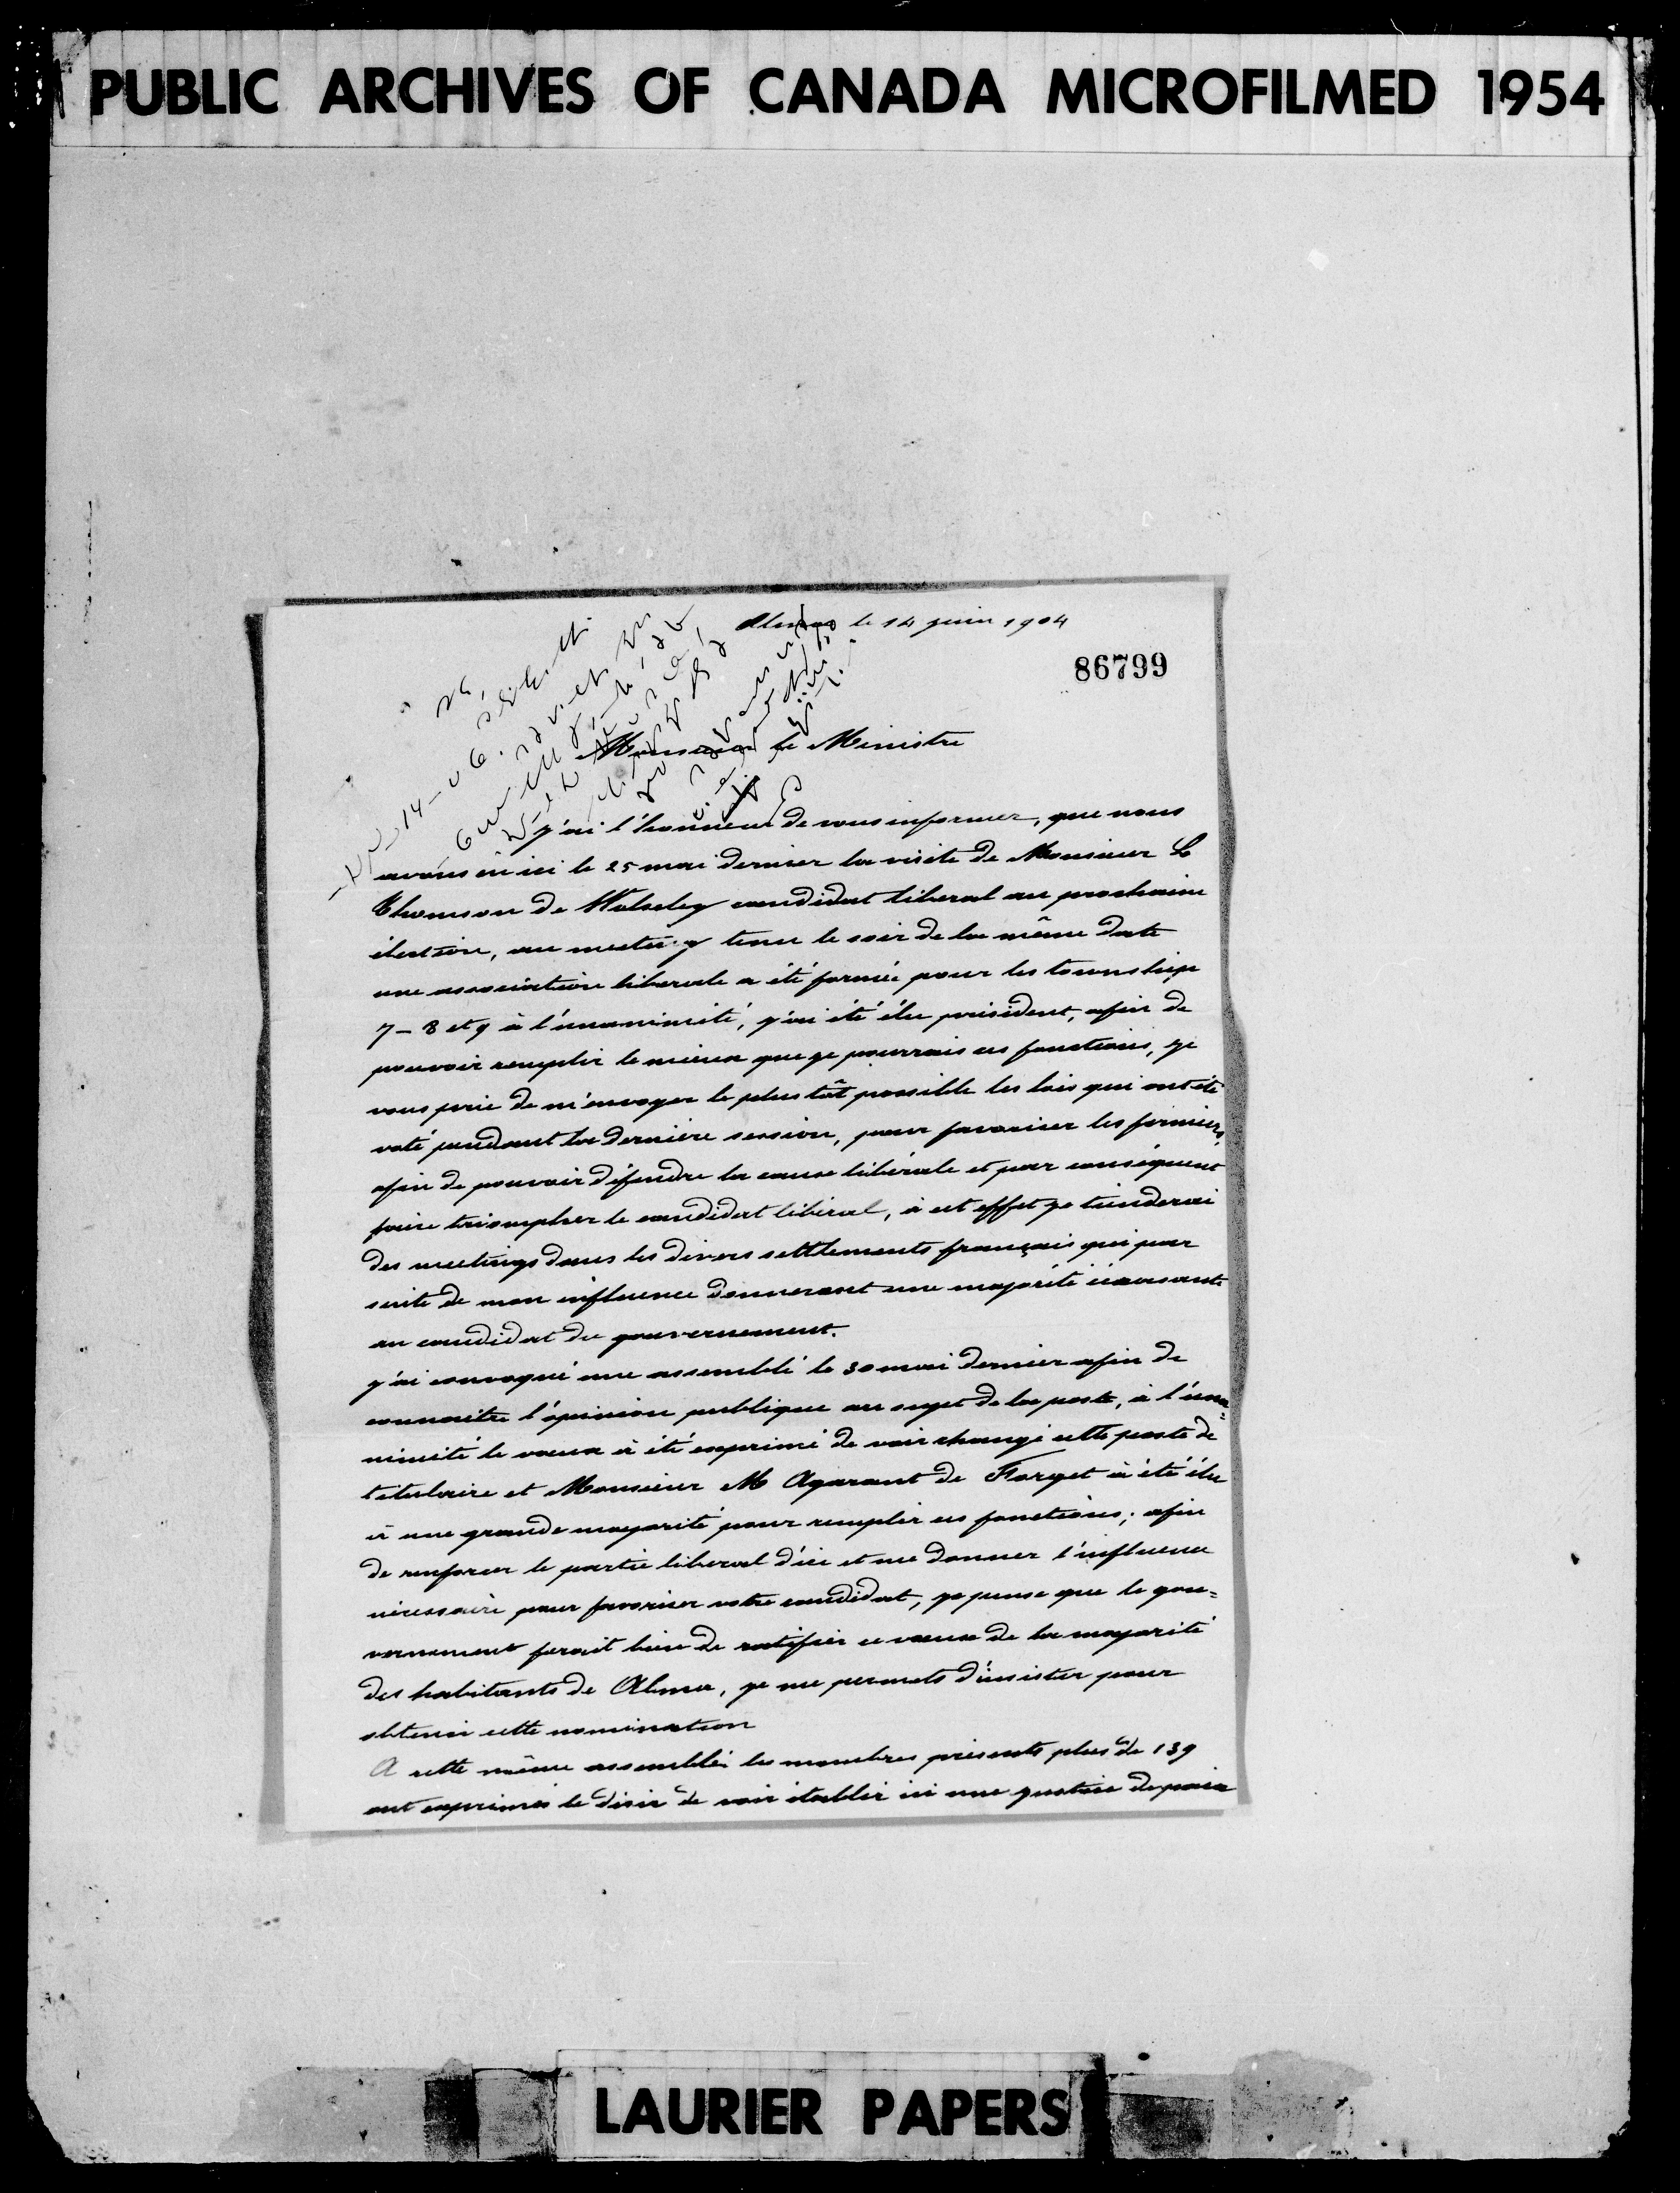 PUBLIC ARCHIVES OF CANADA MICROFILMED 1954
Alma le 14 juin 1904
86799
Monsieur le Ministre
j'ai l'honneur de vous informer, que nous
avons eu ici le 25 mai dernier la visite de Monsieur L
Thomson de Wolseley candidat liberal au prochaine
élection, au meeting tenu le soir de la même date
une association liberale a été formée pour les township
7 - 8 et 9 à l'unanimité, j'ai été élu président, afin de
pouvoir remplir le mieux que je pourrais ces fonctions, je
vous prie de m'envoyer le plus tôt possible les lois qui ont été
voté pendant la dernière session, pour favoriser les fermiers
afin de pouvoir défendre la cause libérale et par conséquent
faire triompher le candidat libéral, à cet effet je tienderai
des meetings dans les divers settlements français qui par
suite de mon influence donneront une majorité écrasante
au candidat du gouvernement.
j'ai convoqué une assemblé le 30 mai dernier afin de
connaitre l'opinion publique au sujet de la poste, à l'una=
nimité le voeux à été exprimé de voir changé cette poste de
titulaire et Monsieur M Agarant de Forget à été élu
à une grande majorité pour remplir ces fonctions; afin
de renforcer le partie liberal d'ici et me donner l'influence
nécessaire pour favoriser votre candidat, je pense que le gou=
vernement ferait bien de ratifier ce voeux de la majorité
des habitants de Alma, je me permets d'insister pour
obtenir cette nomination
A cette même assemblée les membres présents plus de 139
ont exprimés le désir de voir établir ici une justice de paix
LAURIER PAPERS